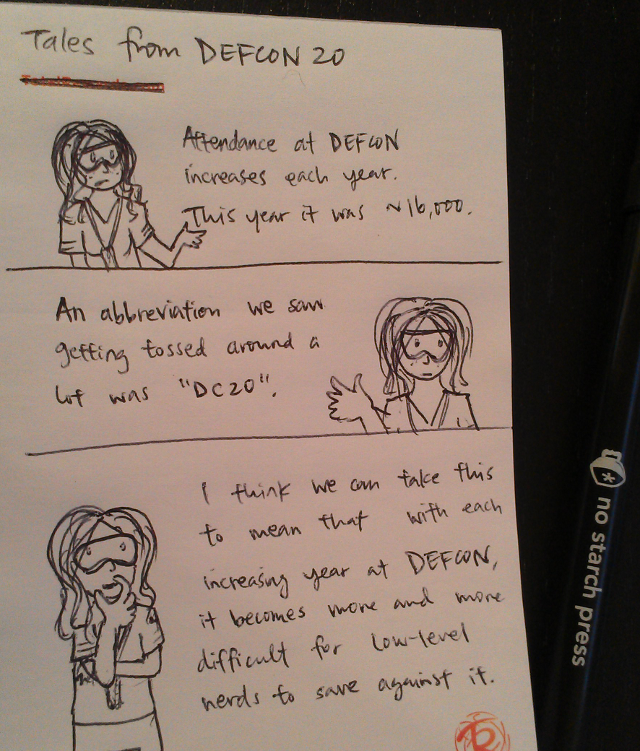 Tales from DEFCON 20
Attendance at DEFCON
increases each year.
This year it was ~16,000.
An abbreviation we saw
getting tossed around a
lot was "DC20".
I think we can take this
to mean that with each
increasing year at DEFCON,
it becomes more and more
difficult for low-level
nerds to save against it.
no starch press